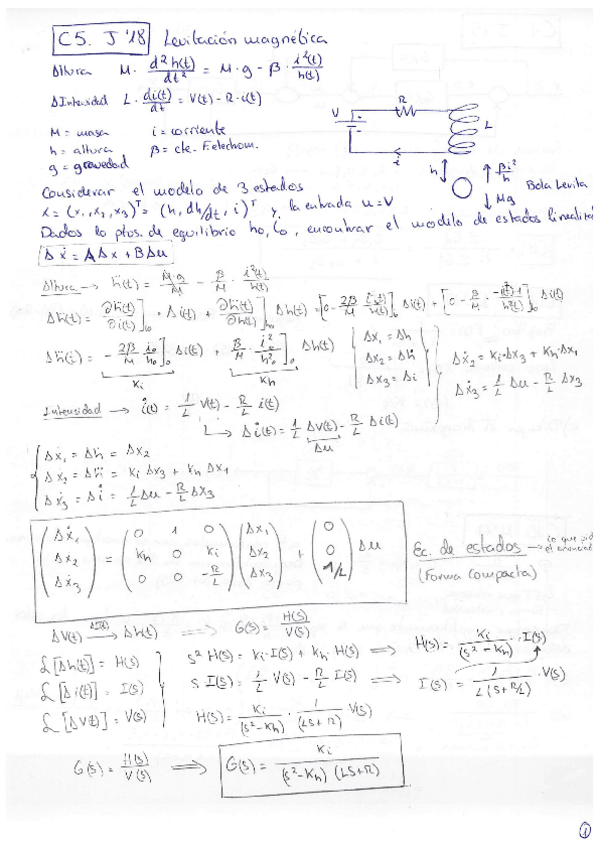 C5. J'18 Levitación magnética
Altura M · d²h(t)/dt² = M·g - β · i²(t)/h(t)
ΔIntensidad L · di(t)/dt = V(t) - R·i(t)
M = masa i = corriente
h = altura β = cte. F.electrom.
g = gravedad
V R L i h βi²/h Mg Bola Levita
Considerar el modelo de 3 estados
x = (x₁, x₂, x₃)ᵀ = (h, dh/dt, i)ᵀ y la entrada u = V
Dados los ptos. de equilibrio h₀, i₀, encontrar el modelo de estados
Δẋ = AΔx + BΔu
Altura → ḧ(t) = M·g/M - β/M · i²(t)/h(t)
Δḧ(t) = ∂ḧ(t)/∂i(t)]₀ · Δi(t) + ∂ḧ(t)/∂h(t)]₀ Δh(t) = [0 - 2β/M i(t)/h(t)]₀ Δi(t) + [0 - β/M · -i²(t)·1/h²(t)]₀ Δi(t)
Δḧ(t) = - 2β/M i₀/h₀]₀ Δi(t) + β/M · i₀²/h₀²]₀ Δh(t)
Ki Kh
Δx₁ = Δh
Δx₂ = Δḣ
Δx₃ = Δi
Δẋ₂ = Ki·Δx₃ + Kh·Δx₁
Δẋ₃ = 1/L Δu - R/L Δx₃
Intensidad → i̇(t) = 1/L V(t) - R/L i(t)
↳ Δi̇(t) = 1/L ΔV(t) - R/L Δi(t)
Δu
Δẋ₁ = Δḣ = Δx₂
Δẋ₂ = Δḧ = Ki Δx₃ + Kh Δx₁
Δẋ₃ = Δi̇ = 1/L Δu - R/L Δx₃
(Δẋ₁ (0 1 0 (Δx₁ (0
Δẋ₂ = Kh 0 Ki Δx₂ + 0 Δu
Δẋ₃) 0 0 -R/L) Δx₃) 1/L)
Ec. de estados →
(Forma compacta)
ΔV(t) → Δh(t) ==> G(s) = H(s)/V(s)
ℒ[Δh(t)] = H(s) s² H(s) = Ki·I(s) + Kh·H(s) ⟹ H(s) = Ki/(s²-Kh) · I(s)
ℒ[Δi(t)] = I(s) s I(s) = 1/L V(s) - R/L I(s) ⟹ I(s) = 1/L(s+R/L) · V(s)
ℒ[ΔV(t)] = V(s) H(s) = Ki/(s²-Kh) · 1/(Ls+R) V(s)
G(s) = H(s)/V(s) ⟹ G(s) = Ki/(s²-Kh)(Ls+R)
1